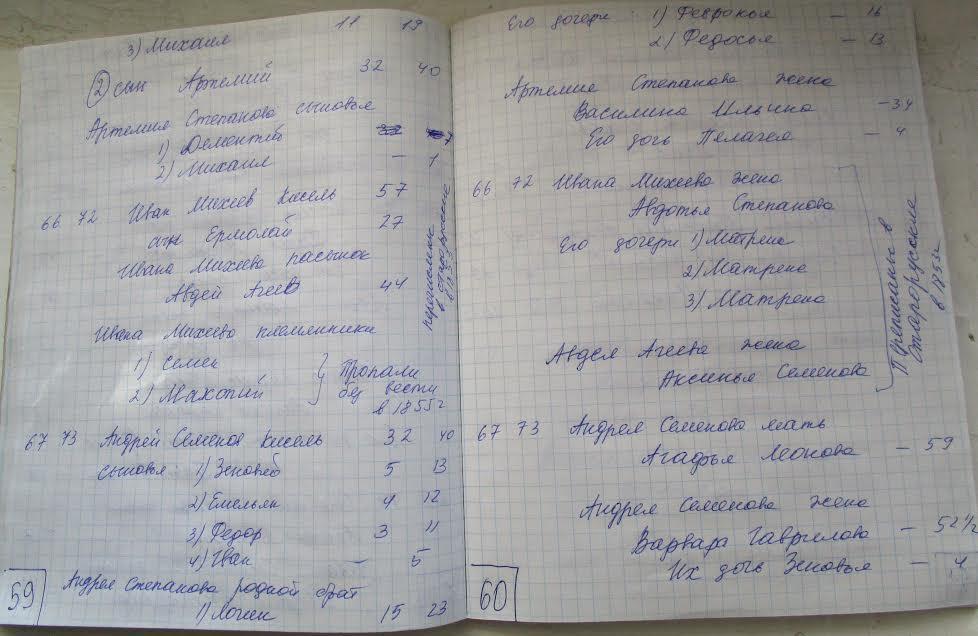 3) Михаил 11 19
② сын Артемий 32 40
Артемия Степанова сыновья
1) Дементий 7
2) Михаил — 1
66 72 Иван Михеев Кисель 57
сын Ермолай 27
Ивана Михеева пасынок
Авдей Агеев 44
переписаны в старорусские в 1853
Ивана Михеева племянники
1) Семен
2) Махотий
Пропали
без вести
в 1855г
67 73 Андрей Семенов Кисель 32 40
сыновья: 1) Зеновей 5 13
2) Емельян 4 12
3) Федор 3 11
4) Иван — 5
Андрея Степанова родной брат
1) Логин 15 23
59
Его дочери: 1) Февронья — 16
2) Федосья — 13
Артемия Степанова жена
Василина Ильина — 34
Его дочь Пелагея — 4
66 72 Ивана Михеева жена
Авдотья Степанова
Его дочери 1) Матрена
2) Матрена
3) Матрена
Авдея Агеева жена
Аксинья Семенова
Преписаны в
Старорусские
в 1853г
67 73 Андрея Семенова мать
Агафья Леонова — 59
Андрея Семенова жена
Варвара Гаврилова — 52 1/2
Их дочь Зеновья — 4
60